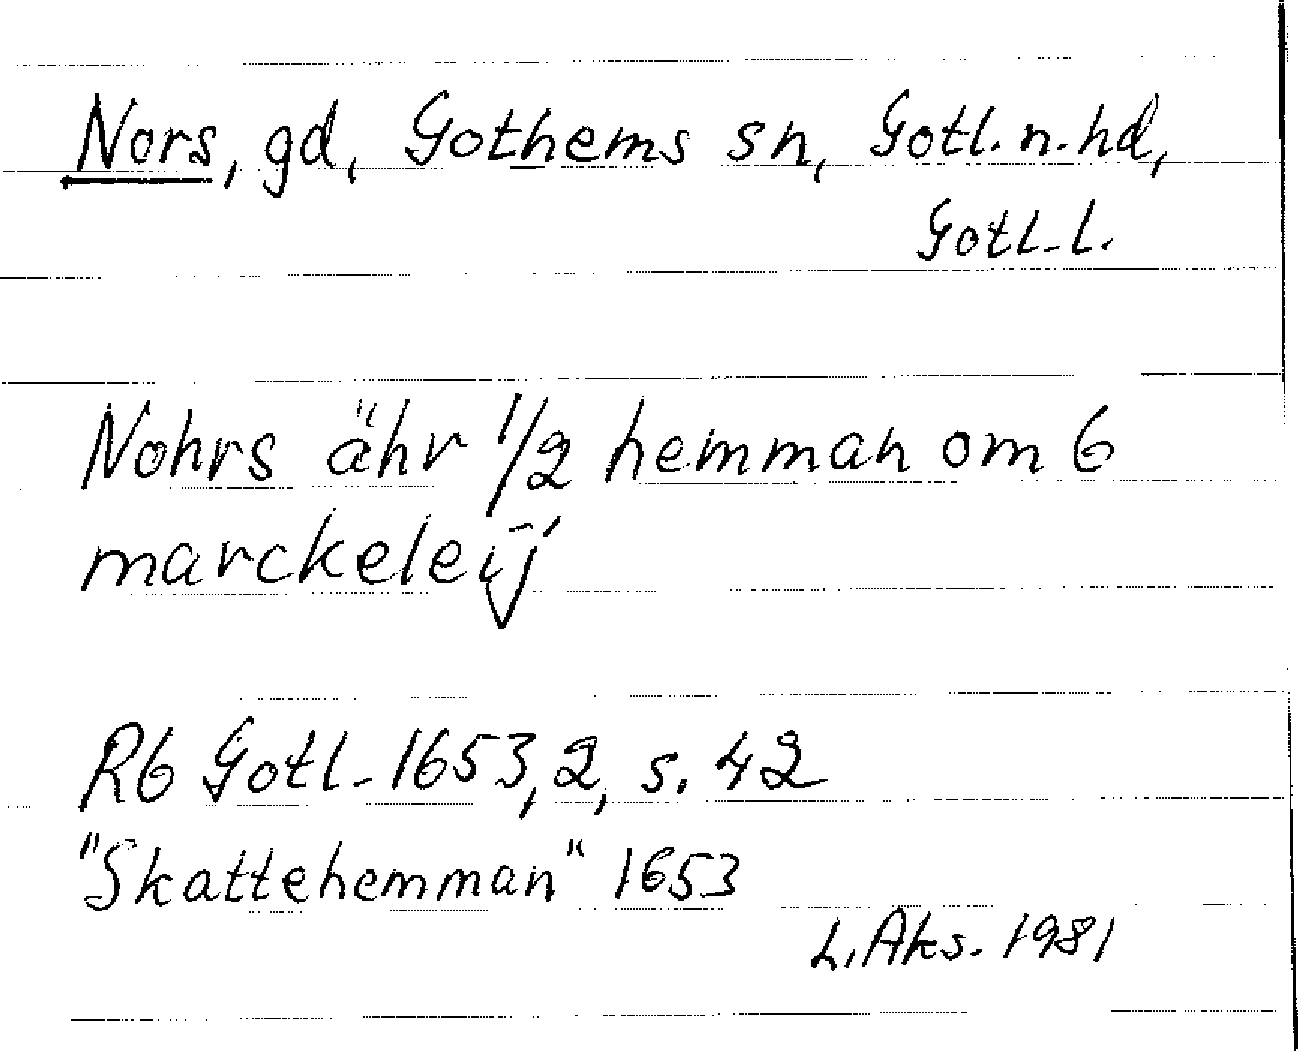 Nors, gd, Gothems sn, Gotl. n. hd,
Gotl. l.
Nohrs ähr 1/2 hemman om 6
marckeleij
Rb Gotl. 1653,2, s. 42
"Skattehemman" 1653
L. Aks. 1981